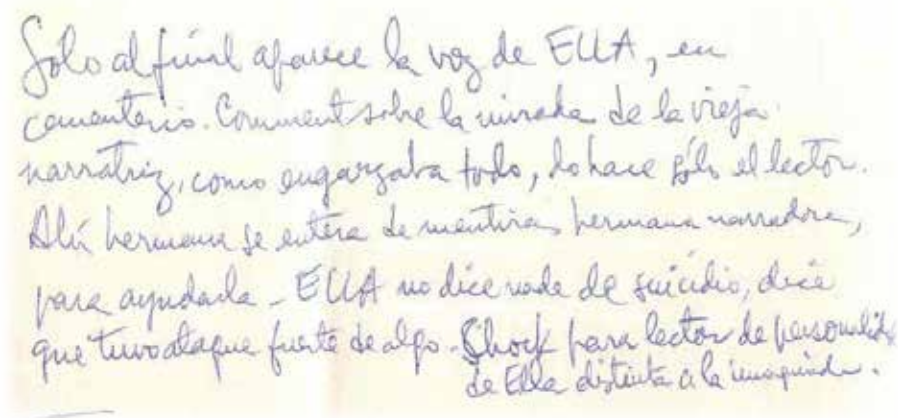 Sólo al final aparece la voz de ELLA, en
cementerio. Comment sobre la mirada de la vieja
narratriz, como engarzaba todo, lo hace sólo el lector.
Ahí hermana se entera de mentiras hermana narradora,
para ayudarla – ELLA no dice nada de suicidio, dice
que tuvo ataque fuerte de algo – Shock para lector de personalidad
de Ella distinta a la imaginada.